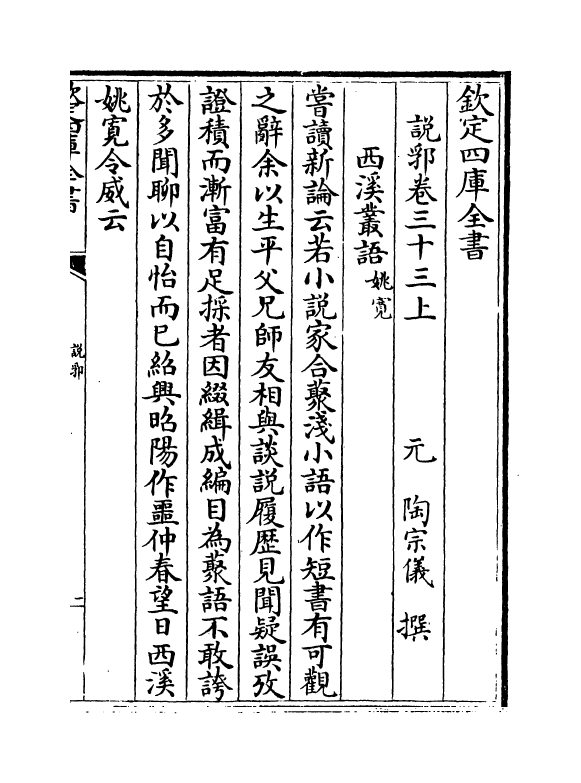 欽定四庫全書
説郛卷三十三上　元　陶宗儀　撰
西溪叢語姚寛
嘗讀新論云若小説家合蕞淺小語以作短書有可觀
之辭余以生平父兄師友相與談説履歴見聞疑誤攷
證積而漸富有足採者因綴緝成編目為蕞語不敢誇
於多聞聊以自怡而已紹興昭陽作噩仲春望日西溪
姚寛令威云
説郛